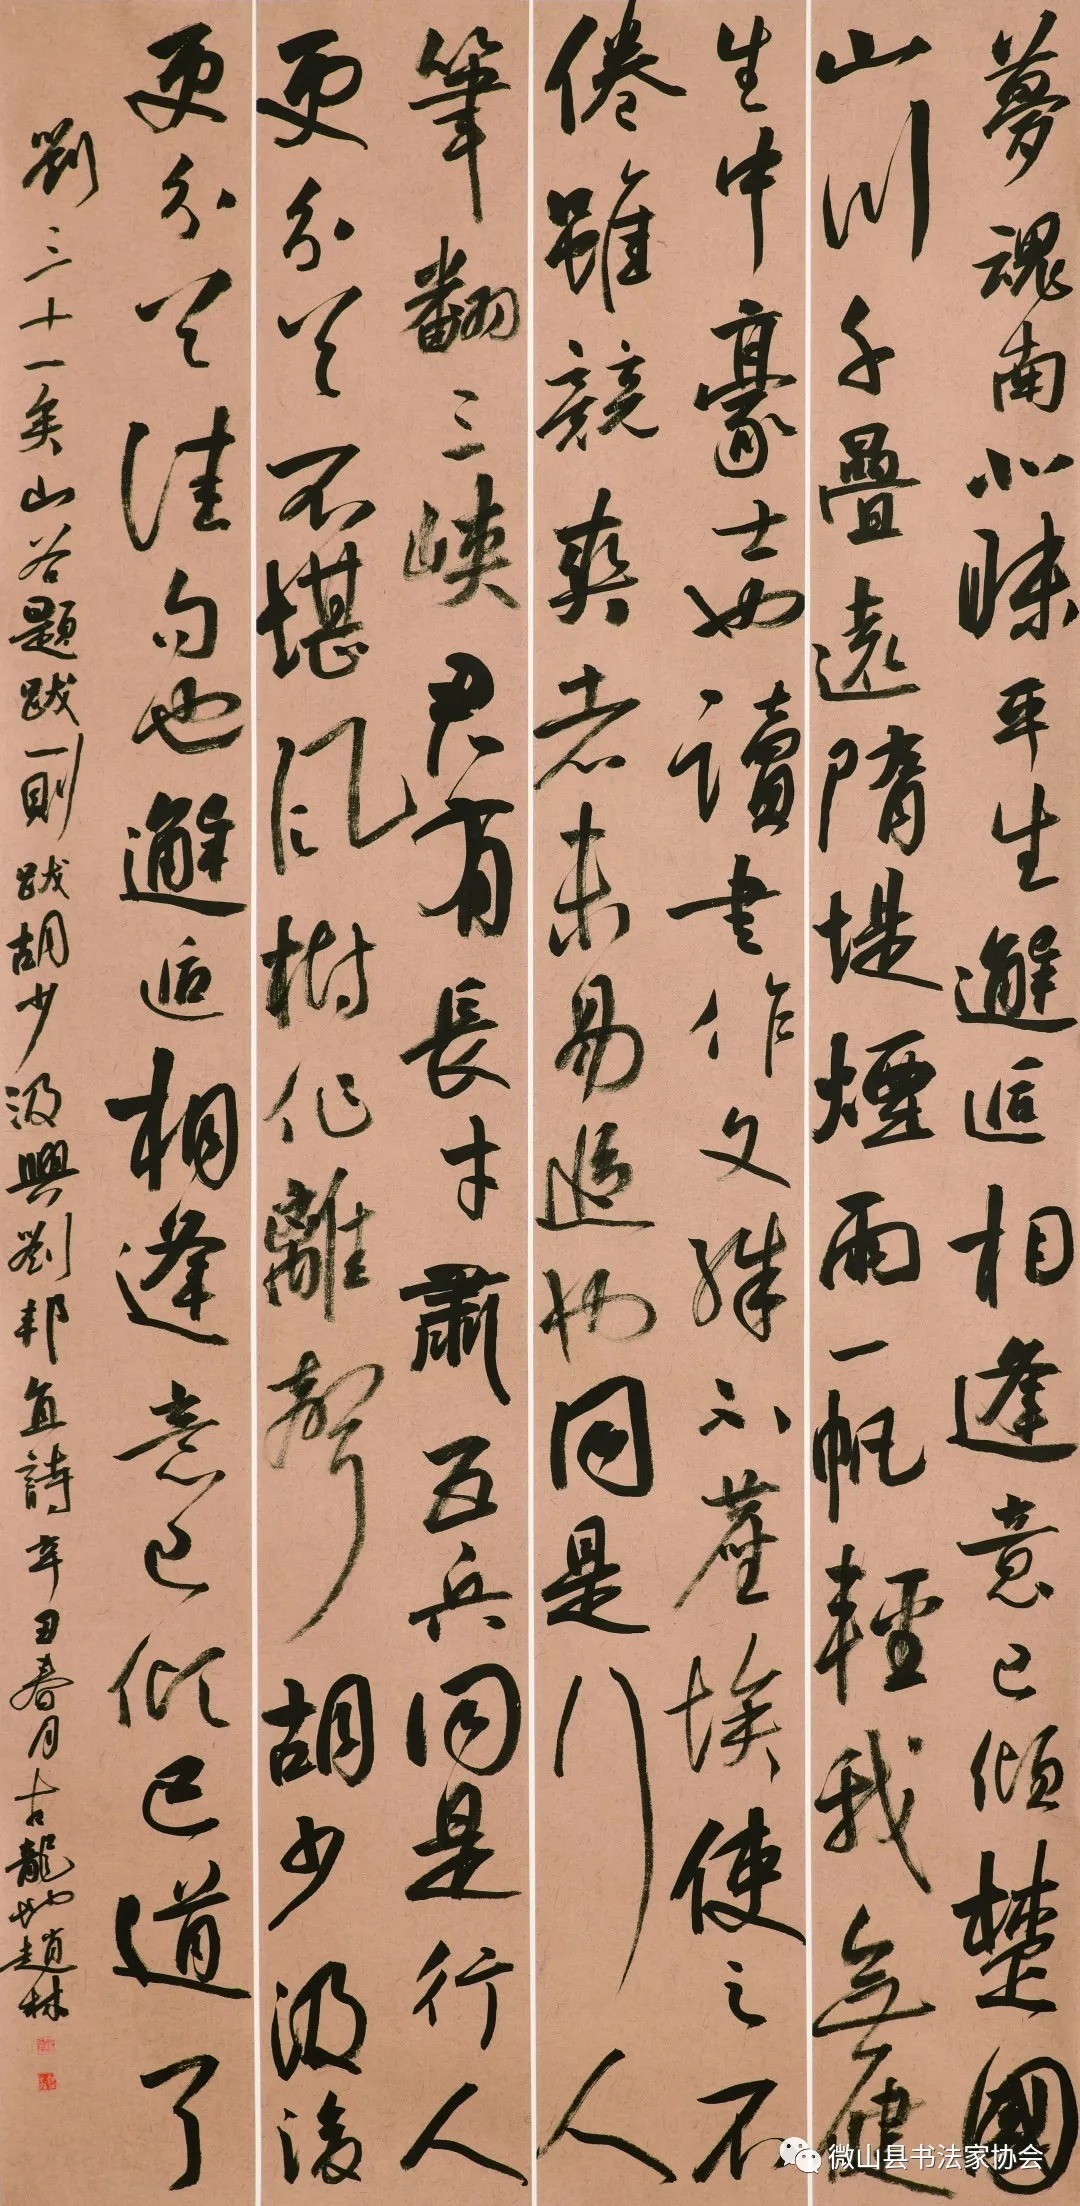 夢魂南北昧平生邂逅相逢意已傾楚國
山川千疊遠隋堤煙雨一帆輕我無健
筆翻三峽君有長才肅五兵同是行人
更分首不堪風樹作離聲胡少汲後
生中豪士也讀書作文殊不塵埃使之不
倦雖競爽者未易追也同是行人
更分首佳句也邂逅相逢意已傾已道了
劉三十一矣山谷題跋一則跋胡少汲與劉邦直詩辛丑春月古龍地趙林
微山县书法家协会